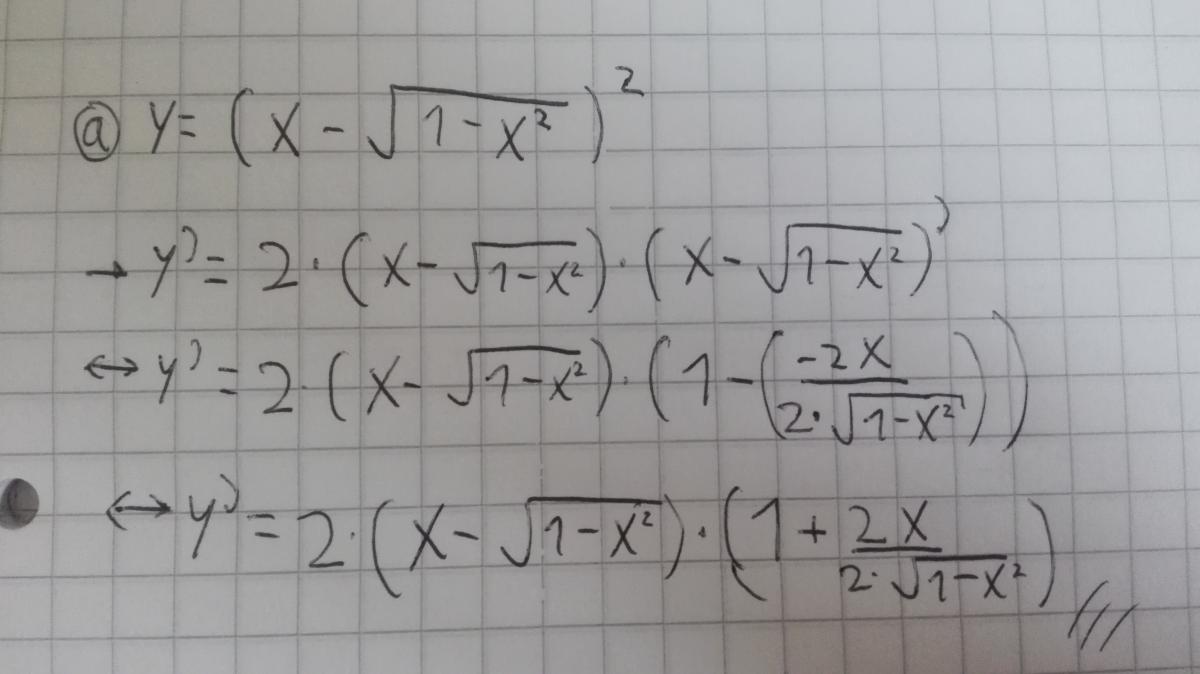 ⓐ y = (x - √(1 - x²))²
→ y' = 2 · (x - √(1 - x²)) · (x - √(1 - x²))'
↔ y' = 2 · (x - √(1 - x²)) · (1 - (-2x / (2 · √(1 - x²))))
↔ y' = 2 · (x - √(1 - x²)) · (1 + 2x / (2 · √(1 - x²))) ///